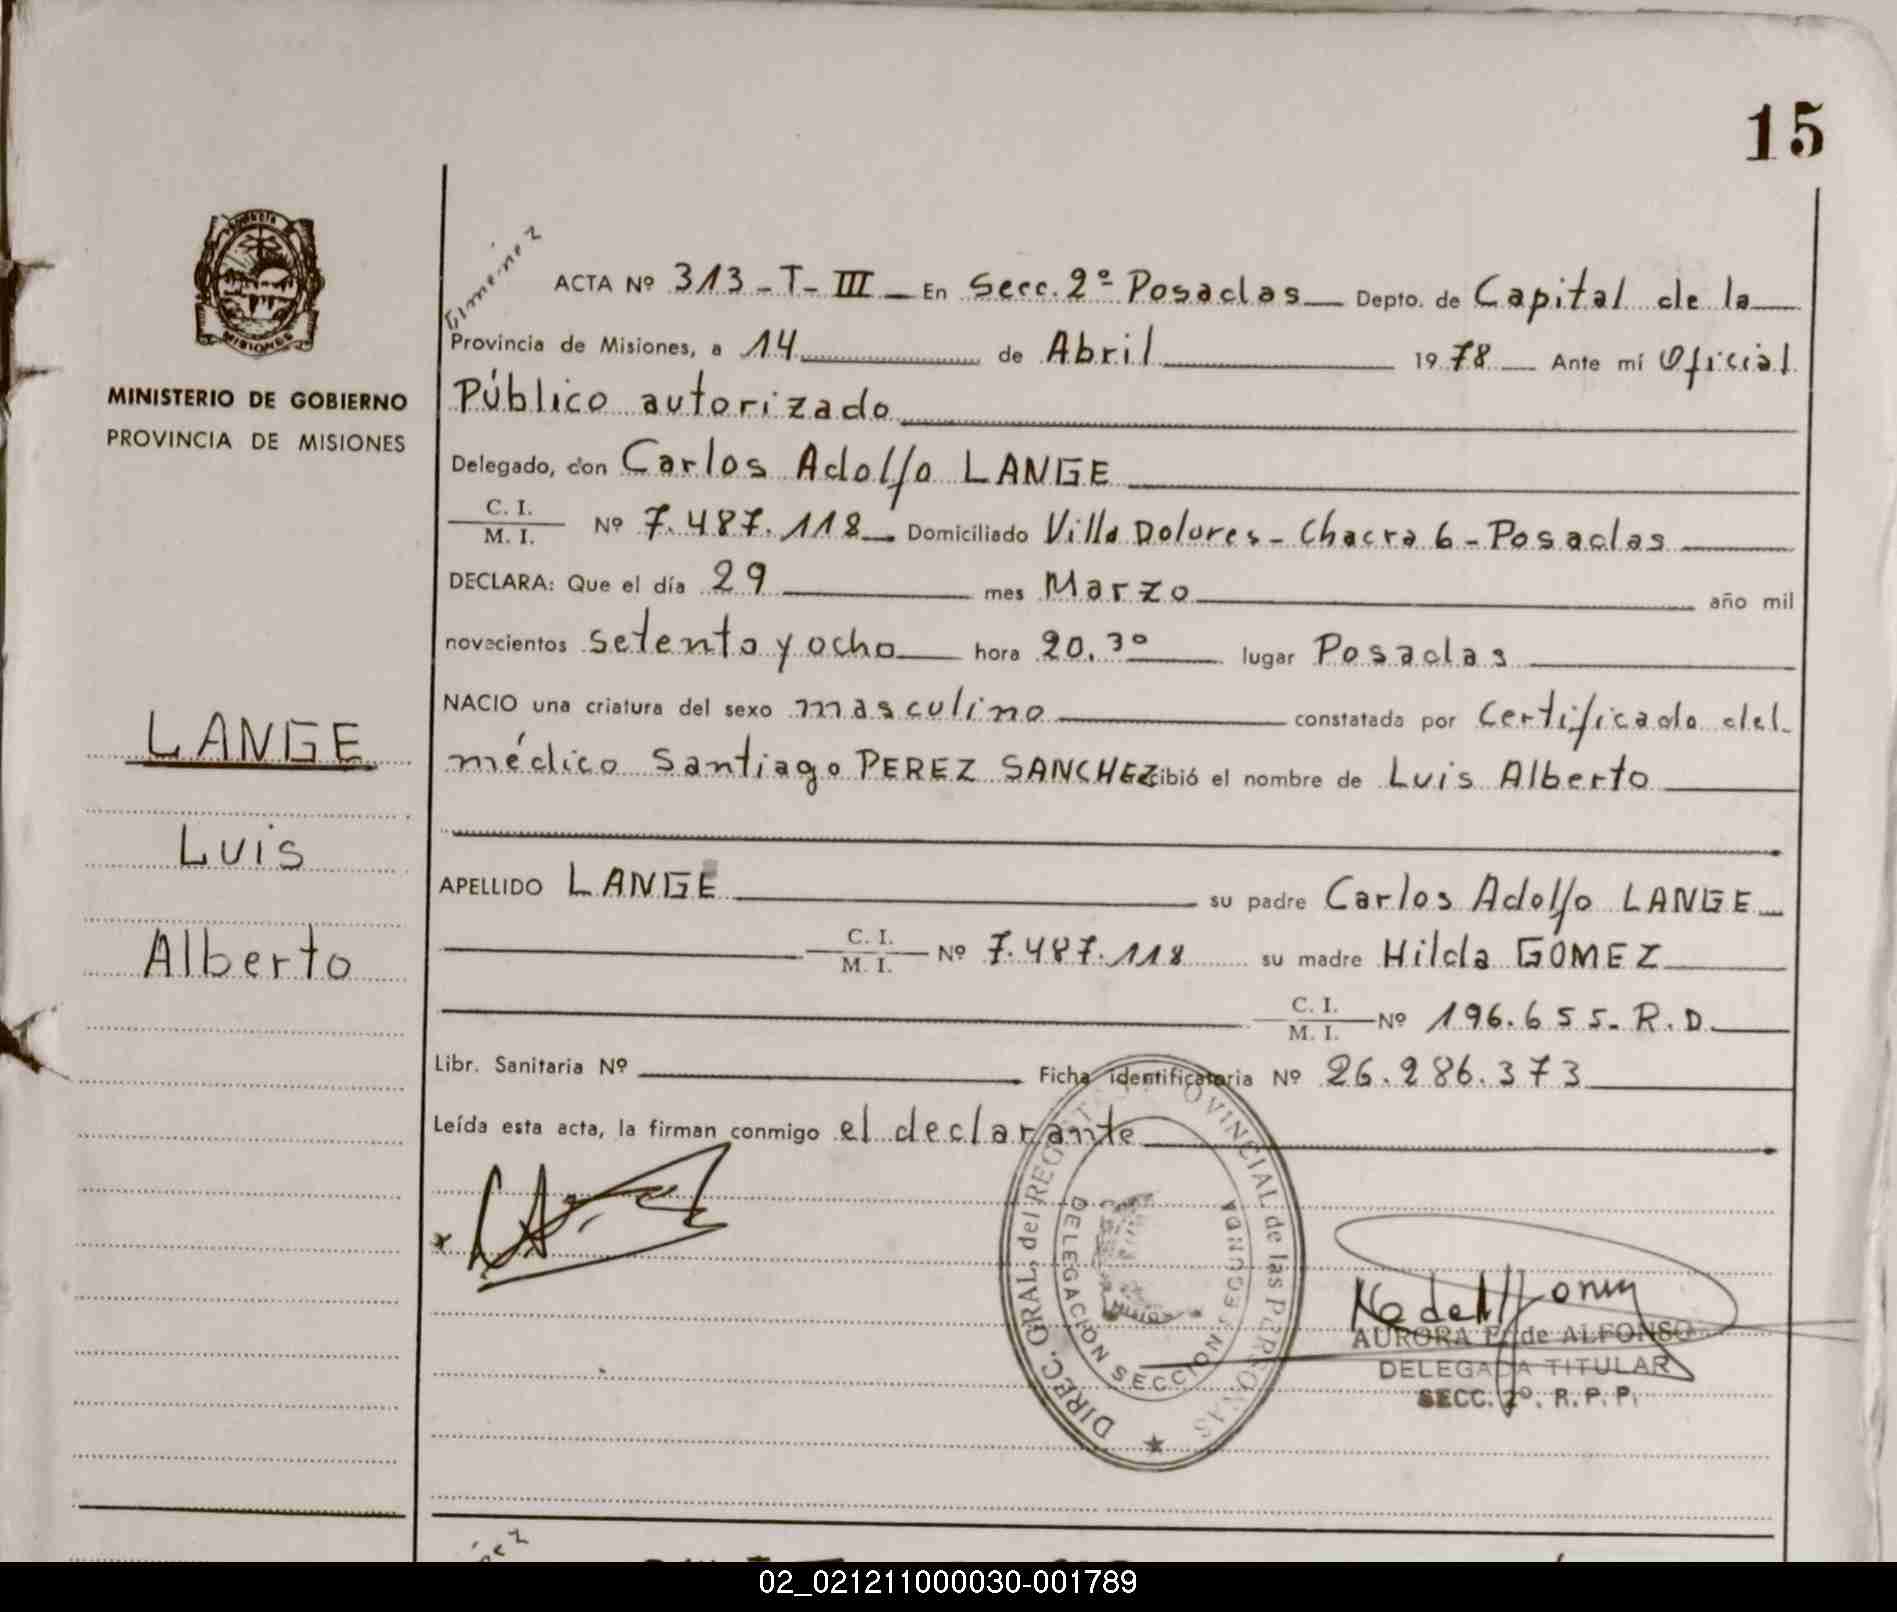 15
MISIONES
MINISTERIO DE GOBIERNO
PROVINCIA DE MISIONES
LANGE
Luis
Alberto
Gimenez
ACTA Nº 313-T-III - En Secc. 2º Posadas Depto. de Capital de la
Provincia de Misiones, a 14 de Abril 1978 Ante mí Oficial
Público autorizado
Delegado, con Carlos Adolfo LANGE
C. I.
M. I. Nº 7.487.118 Domiciliado Villa Dolores - Chacra 6 - Posadas
DECLARA: Que el día 29 mes Marzo año mil
novecientos setenta y ocho hora 20.30 lugar Posadas
NACIO una criatura del sexo masculino constatada por Certificado del
médico Santiago PEREZ SANCHEZ cibió el nombre de Luis Alberto
APELLIDO LANGE su padre Carlos Adolfo LANGE
C. I.
M. I. Nº 7.487.118 su madre Hilda GOMEZ
C. I.
M. I. Nº 196.655- R.D.
Libr. Sanitaria Nº Ficha identificatoria Nº 26.286.373
Leída esta acta, la firman conmigo el declarante
DIREC. GRAL. del REGISTRO PROVINCIAL de las PERSONAS
DELEGACION SECCION SEGUNDA
AURORA de ALFONSO
DELEGADA TITULAR
SECC. 2º. R. P. P.
02_021211000030-001789